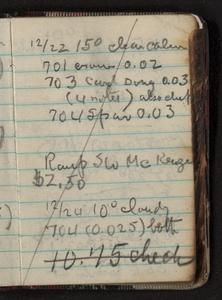 12/22 15° clear calm
701 crow 0.02
703 Card Dung 0.03
(4 notes) also
704 Spar 0.03
Ramp SW McKenzie
$2,50
12/24 10° cloudy
704 (0.025) both
10.75 check